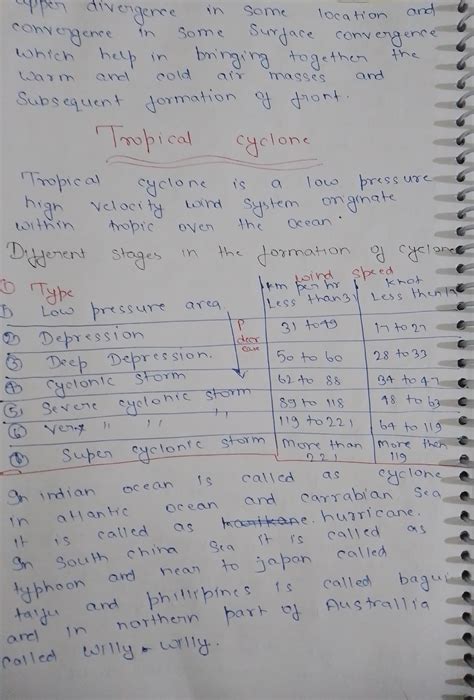 upper divergence in some location and
convergence in some surface convergence
which help in bringing together the
warm and cold air masses and
Subsequent formation of front.
Tropical cyclone
Tropical cyclone is a low pressure
high velocity wind system originate
within tropic over the ocean.
Different stages in the formation of cyclone
① Type wind speed
km per hr knot
① Low pressure area Less than 31 Less then
② Depression P decrease 31 to 49 17 to 27
③ Deep Depression. 50 to 60 28 to 33
④ Cyclonic storm 62 to 88 34 to 47
⑤ Severe cyclonic storm 89 to 118 48 to 63
⑥ Very " " " 119 to 221 64 to 119
Super cyclonic storm More than 221 More then 119
In indian ocean is called as cyclone
in atlantic ocean and carrabian sea
it is called as hurricane.
In South china Sea it is called as
typhoon and near to japan called
taifu and philipines is called bagui
and in northern part of Australlia
called willy-willy.